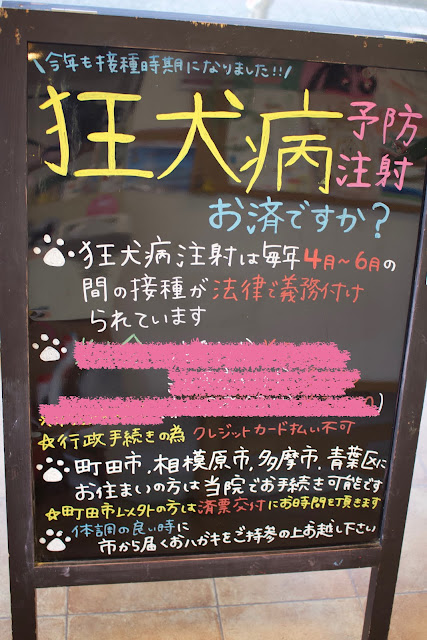 \今年も接種時期になりました!!/
狂犬病予防注射
お済ですか?
狂犬病注射は毎年4月~6月の
間の接種が法律で義務付け
られています
☆行政手続きの為 クレジットカード払い不可
町田市,相模原市,多摩市,青葉区に
お住まいの方は当院でお手続き可能です
☆町田市以外の方は済票交付にお時間を頂きます
体調の良い時に
市から届くおハガキをご持参の上お越し下さい